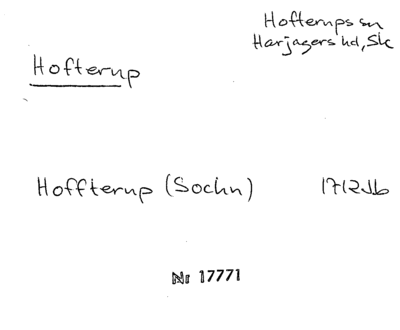 Hofterups sn
Harjagers hd, Sk
Hofterup
Hoffterup (Sochn) 1712 Jb
Nr 17771